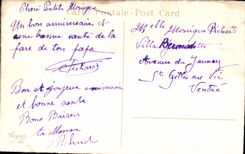 Carte Postale - Post Card
Chère Petite Monique
Un bon anniversaire et
une bonne santé de la
part de ton papa
Richard
Bon et joyeux anniversaire
et bonne santé
Bons Baisers
ta Maman
Richard
Melle Monique Richard
Villa Bernadette
Avenue du Jaunay
St Gilles sur Vie
Vendée